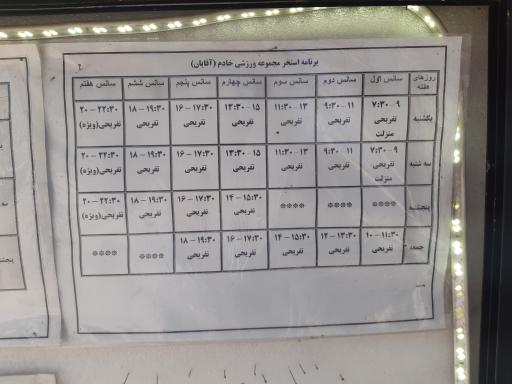 برنامه استخر مجموعه ورزشی خادم (آقایان)
روزهای هفته | سانس اول | سانس دوم | سانس سوم | سانس چهارم | سانس پنجم | سانس ششم | سانس هفتم
یکشنبه | ۷:۳۰ - ۹ تفریحی منزلت | ۹:۳۰ - ۱۱ تفریحی | ۱۱:۳۰ - ۱۳ تفریحی | ۱۳:۳۰ - ۱۵ تفریحی | ۱۶ - ۱۷:۳۰ تفریحی | ۱۸ - ۱۹:۳۰ تفریحی | ۲۰ - ۲۲:۳۰ تفریحی(ویژه)
سه شنبه | ۷:۳۰ - ۹ تفریحی منزلت | ۹:۳۰ - ۱۱ تفریحی | ۱۱:۳۰ - ۱۳ تفریحی | ۱۳:۳۰ - ۱۵ تفریحی | ۱۶ - ۱۷:۳۰ تفریحی | ۱۸ - ۱۹:۳۰ تفریحی | ۲۰ - ۲۲:۳۰ تفریحی(ویژه)
پنجشنبه | **** | **** | **** | ۱۴ - ۱۵:۳۰ تفریحی | ۱۶ - ۱۷:۳۰ تفریحی | ۱۸ - ۱۹:۳۰ تفریحی | ۲۰ - ۲۲:۳۰ تفریحی(ویژه)
جمعه | ۱۰ - ۱۱:۳۰ تفریحی | ۱۲ - ۱۳:۳۰ تفریحی | ۱۴ - ۱۵:۳۰ تفریحی | ۱۶ - ۱۷:۳۰ تفریحی | ۱۸ - ۱۹:۳۰ تفریحی | **** | ****